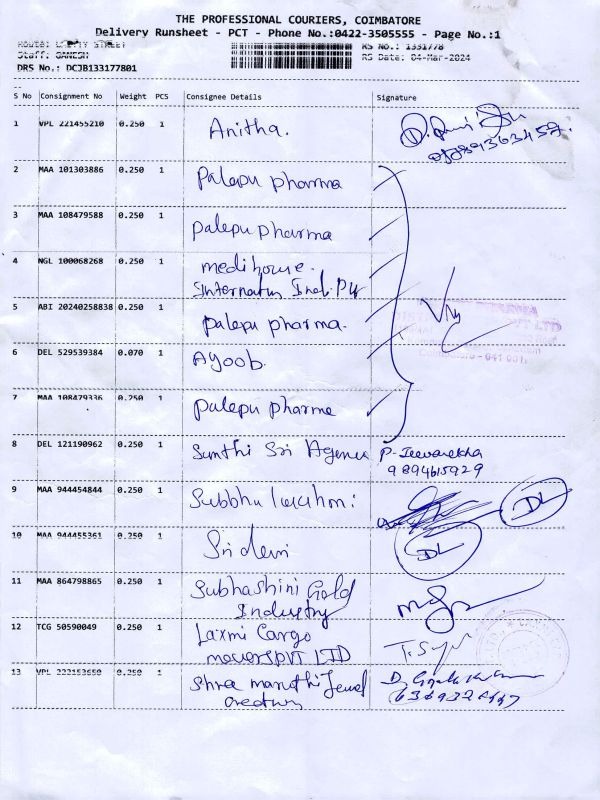 THE PROFESSIONAL COURIERS, COIMBATORE
Delivery Runsheet - PCT - Phone No.:0422-3505555 - Page No.:1
Route: STREET
Staff: GANESH
RS No.: 1331778
RS Date: 04-Mar-2024
DRS No.: DCJB133177801
S No Consignment No Weight PCS Consignee Details Signature
1 VPL 221455210 0.250 1 Anitha.
2 MAA 101303886 0.250 1 Palepu pharma
3 MAA 108479588 0.250 1 palepu pharma
4 NGL 100068268 0.250 1 medihouse.
Ind. Pvt
5 ABI 20240258838 0.250 1 palepu pharma.
PVT LTD
6 DEL 529539384 0.070 1 Ayoob.
Coimbatore - 641 001.
7 MAA 108479336 0.250 1 palepu pharme
8 DEL 121190962 0.250 1 Sri P. Jeevarekha
9894615929
9 MAA 944454844 0.250 1 DL
10 MAA 944455361 0.250 1 Sri devi DL
11 MAA 864798865 0.250 1 Subhashini Gold
Industry
12 TCG 50590049 0.250 1 Laxmi Cargo
movers PVT LTD
13 VPL 222153659 0.250 1 Shree maruthi Jewel